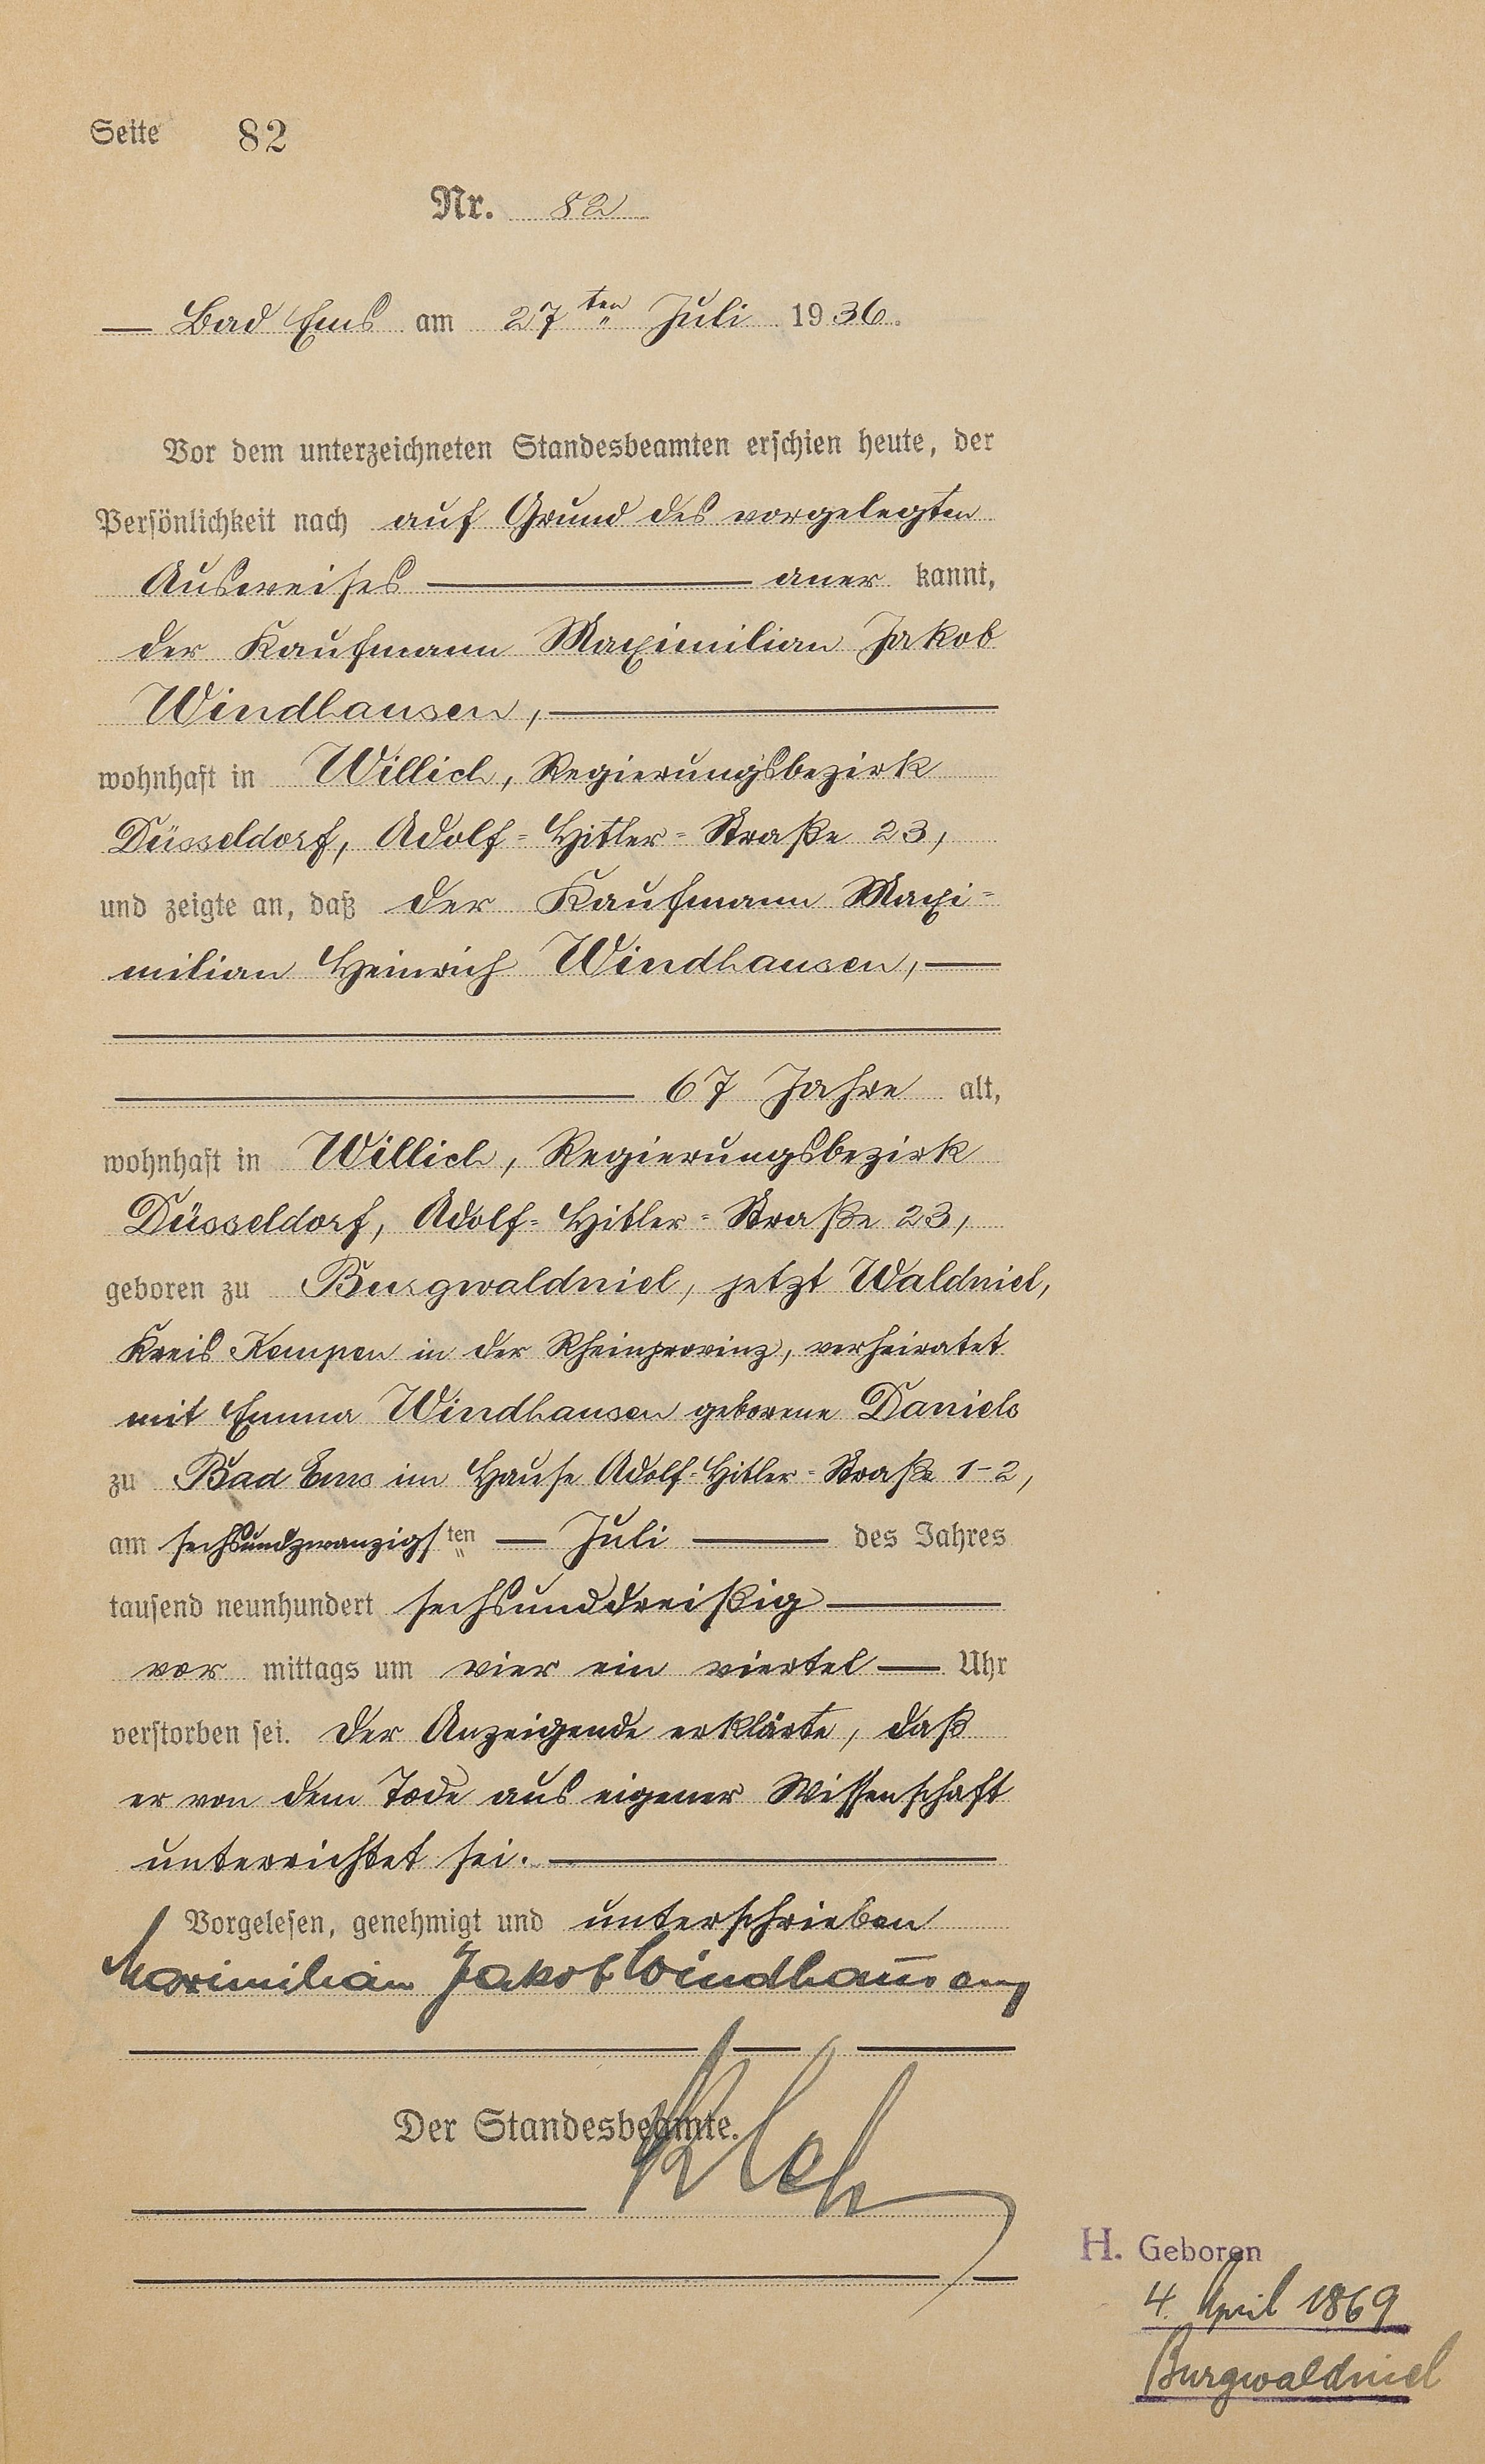 Seite 82
Nr. 82
Bad Ems am 27ten Juli 1936.
Vor dem unterzeichneten Standesbeamten erschien heute, der
Persönlichkeit nach auf Grund des vorgelegten
Ausweises aner kannt,
der Kaufmann Maximilian Jakob
Windhausen,
wohnhaft in Willich, Regierungsbezirk
Düsseldorf, Adolf=Hitler=Straße 23,
und zeigte an, daß der Kaufmann Maxi=
milian Heinrich Windhausen,
67 Jahre alt,
wohnhaft in Willich, Regierungsbezirk
Düsseldorf, Adolf=Hitler=Straße 23,
geboren zu Burgwaldniel, jetzt Waldniel,
Kreis Kempen in der Rheinprovinz, verheiratet
mit Emma Windhausen geborene Daniels
zu Bad Ems im Hause Adolf=Hitler=Straße 1-2,
am sechsundzwanzigsten Juli des Jahres
tausend neunhundert sechsunddreißig
vor mittags um vier ein viertel Uhr
verstorben sei. Der Anzeigende erklärte, daß
er von dem Tode aus eigener Wissenschaft
unterrichtet sei.
Vorgelesen, genehmigt und unterschrieben
Maximilian Jakob Windhausen
Der Standesbeamte.
H. Geboren
4. April 1869
Burgwaldniel